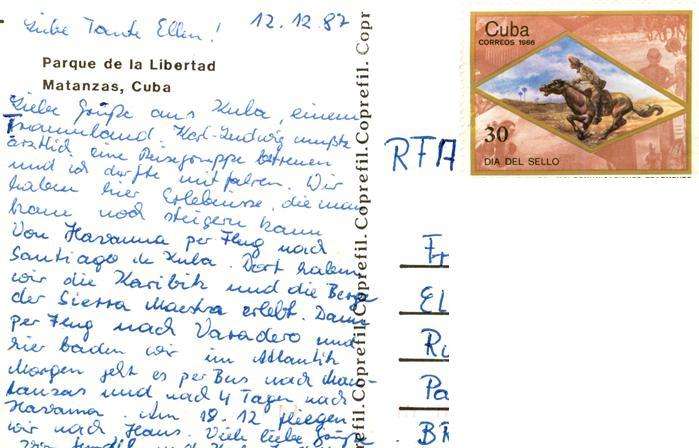 Liebe Tante Ellen! 12.12.87
Parque de la Libertad
Matanzas, Cuba
Liebe Grüße aus Kuba, einem
Traumland. Karl-Ludwig mußte
ärztlich eine Reisegruppe betreuen
und ich durfte mitfahren. Wir
haben hier Erlebnisse, die man
kaum noch steigern kann
Von Havanna per Flug nach
Santiago de Kuba. Dort haben
wir die Karibik und die Berge
der Sierra Maestra erlebt. Dann
per Flug nach Varadero und
hier baden wir im Atlantik
Morgen geht es per Bus nach Man-
tanzas und nach 4 Tagen nach
Havanna. Am 18.12 fliegen
wir nach Haus. Viele liebe Grüße
und
Coprefil.Coprefil.Coprefil.Coprefil.Copr
Cuba
CORREOS 1986
30
DIA DEL SELLO
RFA
Fr
El
Ru
Pa
BR